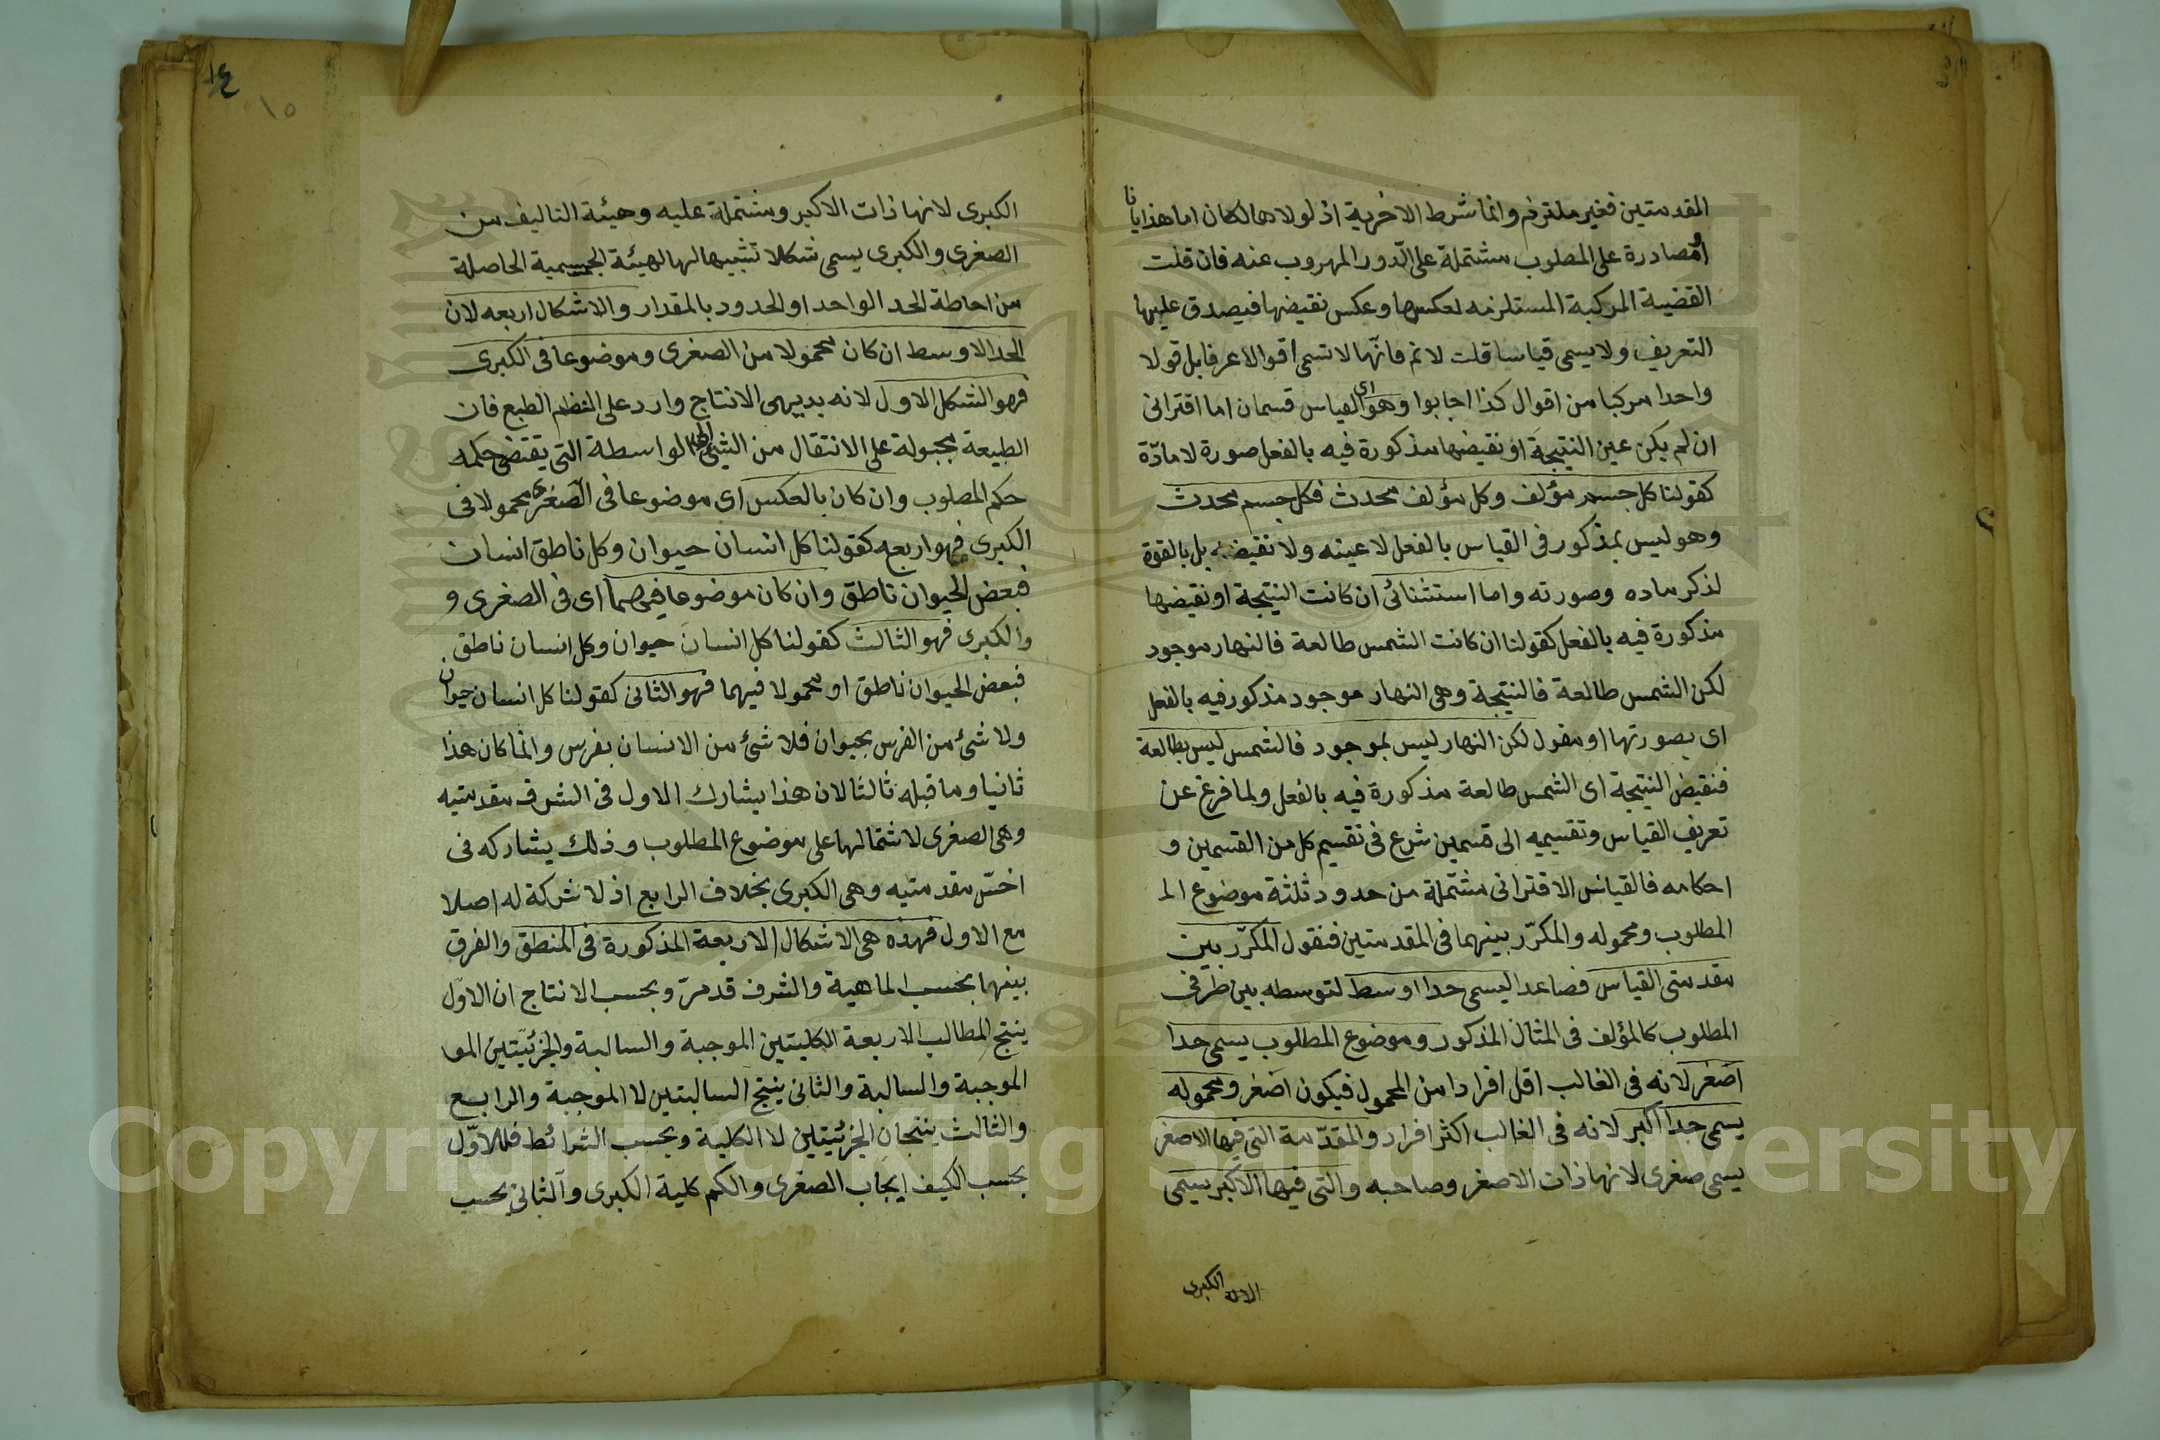 المقدمتين فغير ملتزم وانما شرط الاخرية اذ لولاها لكان اما هذايانا
او مصادرة على المطلوب مشتملة على الدّور المهروب عنه فان قلت
القضية المركبة المستلزمه لعكسها وعكس نقيضها فيصدق عليها
التعريف ولا يسمى قياسا قلت لا نم فانّها لا تسمى اقوالا عرفا بل قولا
واحدا مركبا من اقوال كذا اجابوا وهو اى القياس قسمان اما اقترانى
ان لم يكن عين النتيجة او نقيضها مذكورة فيه بالفعل صورة لا مادّة
كقولنا كل جسم مؤلف وكل مؤلف محدث فكل جسم محدث
وهو ليس بمذكور فى القياس بالفعل لا عينه ولا نقيضه بل بالقوة
لذكر ماده وصورته واما استثنائى ان كانت النتيجة او نقيضها
مذكورة فيه بالفعل كقولنا ان كانت الشمس طالعة فالنهار موجود
لكن الشمس طالعة فالنتيجة وهى النهار موجود مذكور فيه بالفعل
اى بصورتها او مقول لكن النهار ليس بموجود فالشمس ليس بطالعة
فنقيض النتيجة اى الشمس طالعة مذكورة فيه بالفعل ولما فرغ عن
تعريف القياس وتقسيمه الى قسمين شرع فى تقسيم كل من القسمين و
احكامه فالقياس الاقترانى مشتملة من حدود ثلثة موضوع المـ
المطلوب ومحموله والمكرّر بينهما فى المقدمتين فنقول المكرّر بين
مقدمتى القياس فصاعدا ليسمى حدا اوسط لتوسطه بين طرفى
المطلوب كالمؤلف فى المثال المذكور وموضوع المطلوب يسمى حدا
اصغر لانه فى الغالب اقل افرادا من المحمول فيكون اصغر ومحموله
يسمى حدا اكبر لانه فى الغالب اكثر افراد والمقدّمة التى فيها الاصغر
يسمى صغرى لانها ذات الاصغر وصاحبه والتى فيها الاكبر يسمى
الكبرى
١٤
١٥
الكبرى لانها ذات الاكبر ومشتملة عليه وهيئة التاليف من
الصغرى والكبرى يسمى شكلا تشبيها لها لهيئة الجسمية الحاصلة
من احاطة الحد الواحد او الحدود بالمقدار والاشكال اربعه لان
الحد الاوسط ان كان محمولا من الصغرى وموضوعا فى الكبرى
فهو الشكل الاول لانه بديهى الانتاج وارد على النظم الطبع فان
الطبيعة مجبولة على الانتقال من الشئ الى الواسطة التى يقتضى حكمه
حكم المطلوب وان كان بالعكس اى موضوعا فى الصّغرى محمولا فى
الكبرى فهو اربعه كقولنا كل انسان حيوان وكل ناطق انسان
فبعض الحيوان ناطق وان كان موضوعا فيهما اى فى الصغرى و
والكبرى فهو الثالث كقولنا كل انسان حيوان وكل انسان ناطق
فبعض الحيوان ناطق او محمولا فيهما فهو الثانى كقولنا كل انسان حيوان
ولا شئ من الفرس بحيوان فلا شئ من الانسان بفرس وانما كان هذا
ثانيا وما قبله ثالثا لان هذا يشارك الاول فى الشرف مقدمتيه
وهى الصغرى لاشتمالها على موضوع المطلوب وذلك يشاركه فى
اخسّ مقدمتيه وهى الكبرى بخلاف الرابع اذ لا شركة له اصلا
مع الاول فهذه هى الاشكال الاربعة المذكورة فى المنطق والفرق
بينها بحسب الماهية والشرف قد مرّ وبحسب الانتاج ان الاوّل
ينتج المطالب الاربعة الكليتين الموجبة والسالبة والجزئيّتين المو
الموجبة والسالبة والثانى ينتج السالبتين لا الموجبة والرابع
والثالث ينتجان الجزئيتين لا الكلية وبحسب الشرائط فللاوّل
بحسب الكيف ايجاب الصغرى والكم كلية الكبرى والثانى بحسب
Copyright © King Saud University